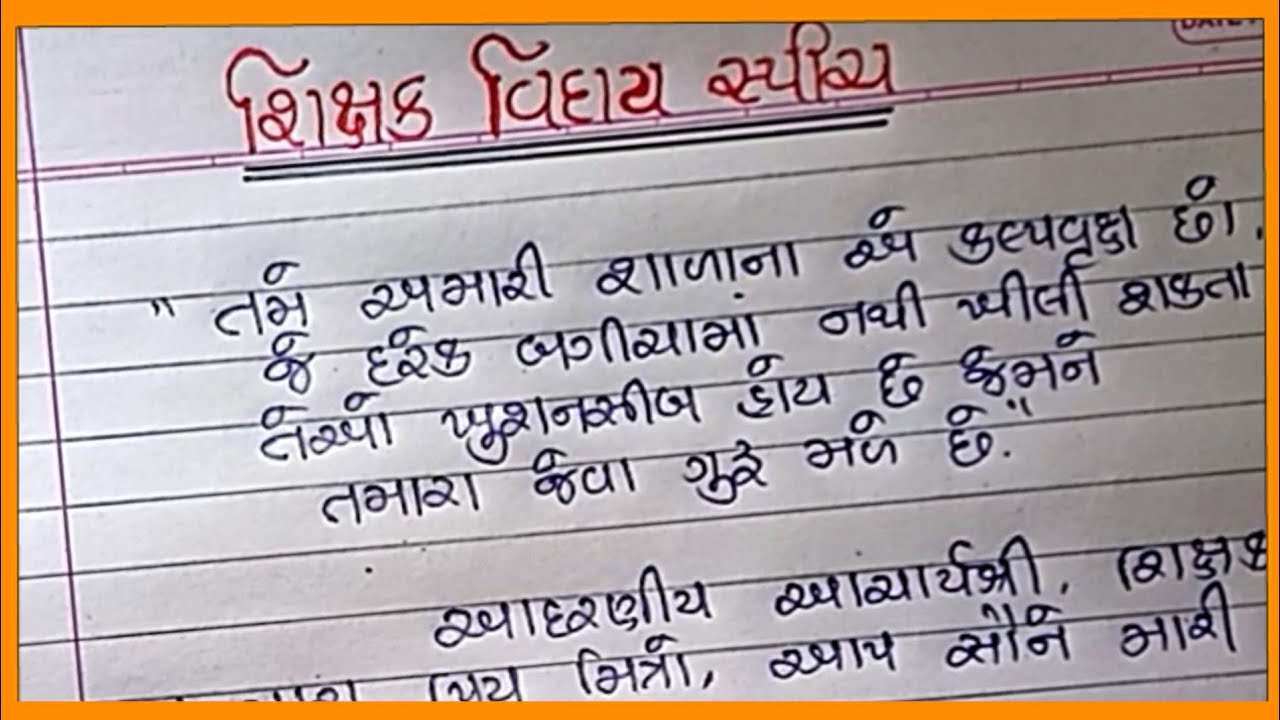 શિક્ષક વિદાય સ્પીચ
" તમે અમારી શાળાના એ કલ્પવૃક્ષ છો.
જે દરેક બગીચામાં નથી ખીલી શકતા
તેઓ ખુશનસીબ હોય છે જેમને
તમારા જેવા ગુરુ મળે છે. "
આદરણીય આચાર્યશ્રી, શિક્ષક
પ્રિય મિત્રો, આપ સૌને મારી